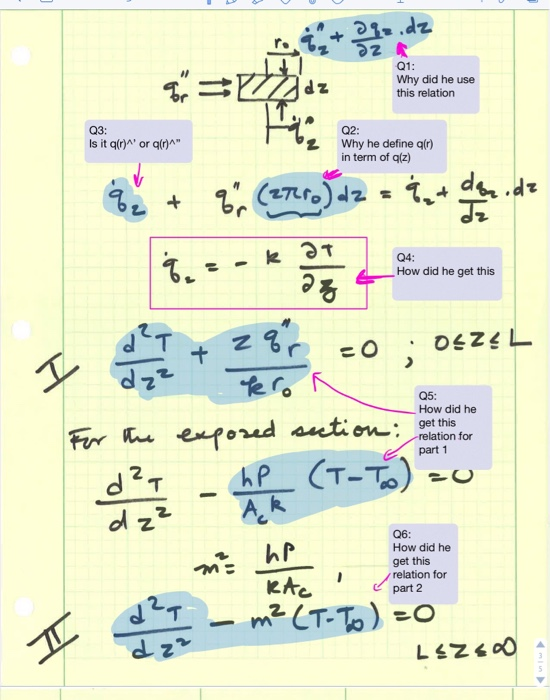 r₀ q̇″z + ∂qz/∂z . dz
Q1:
Why did he use
this relation
q″r ⇒ dz
q̇″z
Q3:
Is it q(r)^' or q(r)^"
Q2:
Why he define q(r)
in term of q(z)
q̇z + q″r (2πr₀) dz = q̇z + dqz/dz . dz
q̇z = - k ∂T/∂z
Q4:
How did he get this
I d²T/dz² + 2 q″r/k r₀ = 0 ; 0≤Z≤L
Q5:
How did he
get this
relation for
part 1
For the exposed section:
d²T/dz² - hP/Ac k (T-T∞) = 0
Q6:
How did he
get this
relation for
part 2
m² = hP/kAc ,
II d²T/dz² - m² (T-T∞) = 0
L≤Z≤∞
3/5